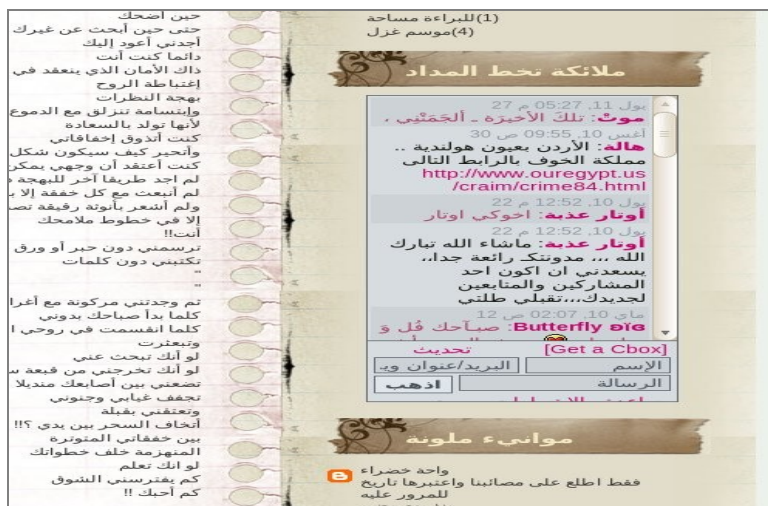 (1)للبراءة مساحة
(4)موسم غزل
ملائكة تخط المداد
27 يول 11, 05:27 م
موتْ: تلكَ الأخيرَة ـ ألجَمَتْنِي ،
30 أغس 10, 09:55 ص
هالة: الأردن بعيون هولندية ..
مملكة الخوف بالرابط التالى
http://www.ouregypt.us
/craim/crime84.html
22 يول 10, 12:52 م
أوتار عذبة: اخوكي اوتار
22 يول 10, 12:52 م
أوتار عذبة: ماشاء الله تبارك
الله ،،، مدونتكـ رائعة جدا،،
يسعدني ان اكون احد
المشاركين والمتابعين
لجديدك،،،تقبلي طلتي
12 ماي 10, 02:07 ص
Butterfly ʚïɞ: صبـآحك فُل وَ
[Get a Cbox] تحديث
الإسم
البريد/عنوان وي
الرسالة
اذهب
موانيء ملونة
واحة خضراء
فقط اطلع على مصائبنا واعتبرها تاريخ
للمرور عليه
حين أضحك
حتى حين أبحث عن غيرك
أجدني أعود إليك
دائما كنت أنت
ذاك الأمان الذي ينعقد في
إغتباطة الروح
بهجة النظرات
وإبتسامة تنزلق مع الدموع
لأنها تولد بالسعادة
كنت أتذوق إخفاقاتي
وأتحير كيف سيكون شكل
كنت أعتقد أن وجهي يمكن
لم اجد طريقا آخر للبهجة
لم أنبعث مع كل خفقة إلا
ولم أشعر بأنوثة رقيقة
إلا في خطوط ملامحك
أنت!!
ترسمني دون حبر أو ورق
تكتبني دون كلمات
"
"
ثم وجدتني مركونة مع
كلما بدأ صباحك بدوني
كلما انقسمت في روحي
وتبعثرت
لو أنك تبحث عني
لو أنك تخرجني من قبعة
تضعني بين أصابعك منديلا
تجفف غيابي وجنوني
وتعتقني بقبلة
أتخاف السحر بين يدي ؟!!
بين خفقاتي المتوترة
المنهزمة خلف خطواتك
لو انك تعلم
كم يفترسني الشوق
كم أحبك !!